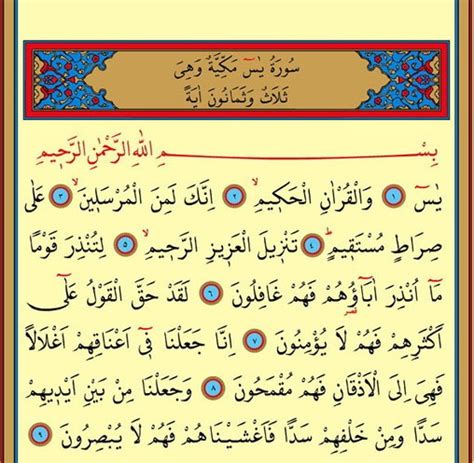 سُورَةُ يٰسٓ مَكِّيَّةٌ وَهِىَ
ثَلَاثٌ وَثَمَانُونَ اٰيَةً
بِسْمِ اللّٰهِ الرَّحْمٰنِ الرَّحٖيمِ
يٰسٓ ﴿١﴾ وَالْقُرْاٰنِ الْحَكٖيمِۙ ﴿٢﴾ اِنَّكَ لَمِنَ الْمُرْسَلٖينَۙ ﴿٣﴾ عَلٰى
صِرَاطٍ مُسْتَقٖيمٍؕ ﴿٤﴾ تَنْزٖيلَ الْعَزٖيزِ الرَّحٖيمِۙ ﴿٥﴾ لِتُنْذِرَ قَوْمًا
مَٓا اُنْذِرَ اٰبَٓاؤُ۬هُمْ فَهُمْ غَافِلُونَ ﴿٦﴾ لَقَدْ حَقَّ الْقَوْلُ عَلٰٓى
اَكْثَرِهِمْ فَهُمْ لَا يُؤْمِنُونَ ﴿٧﴾ اِنَّا جَعَلْنَا فٖٓى اَعْنَاقِهِمْ اَغْلَالًا
فَهِىَ اِلَى الْاَذْقَانِ فَهُمْ مُقْمَحُونَ ﴿٨﴾ وَجَعَلْنَا مِنْ بَيْنِ اَيْدٖيهِمْ
سَدًّا وَمِنْ خَلْفِهِمْ سَدًّا فَاَغْشَيْنَاهُمْ فَهُمْ لَا يُبْصِرُونَ ﴿٩﴾